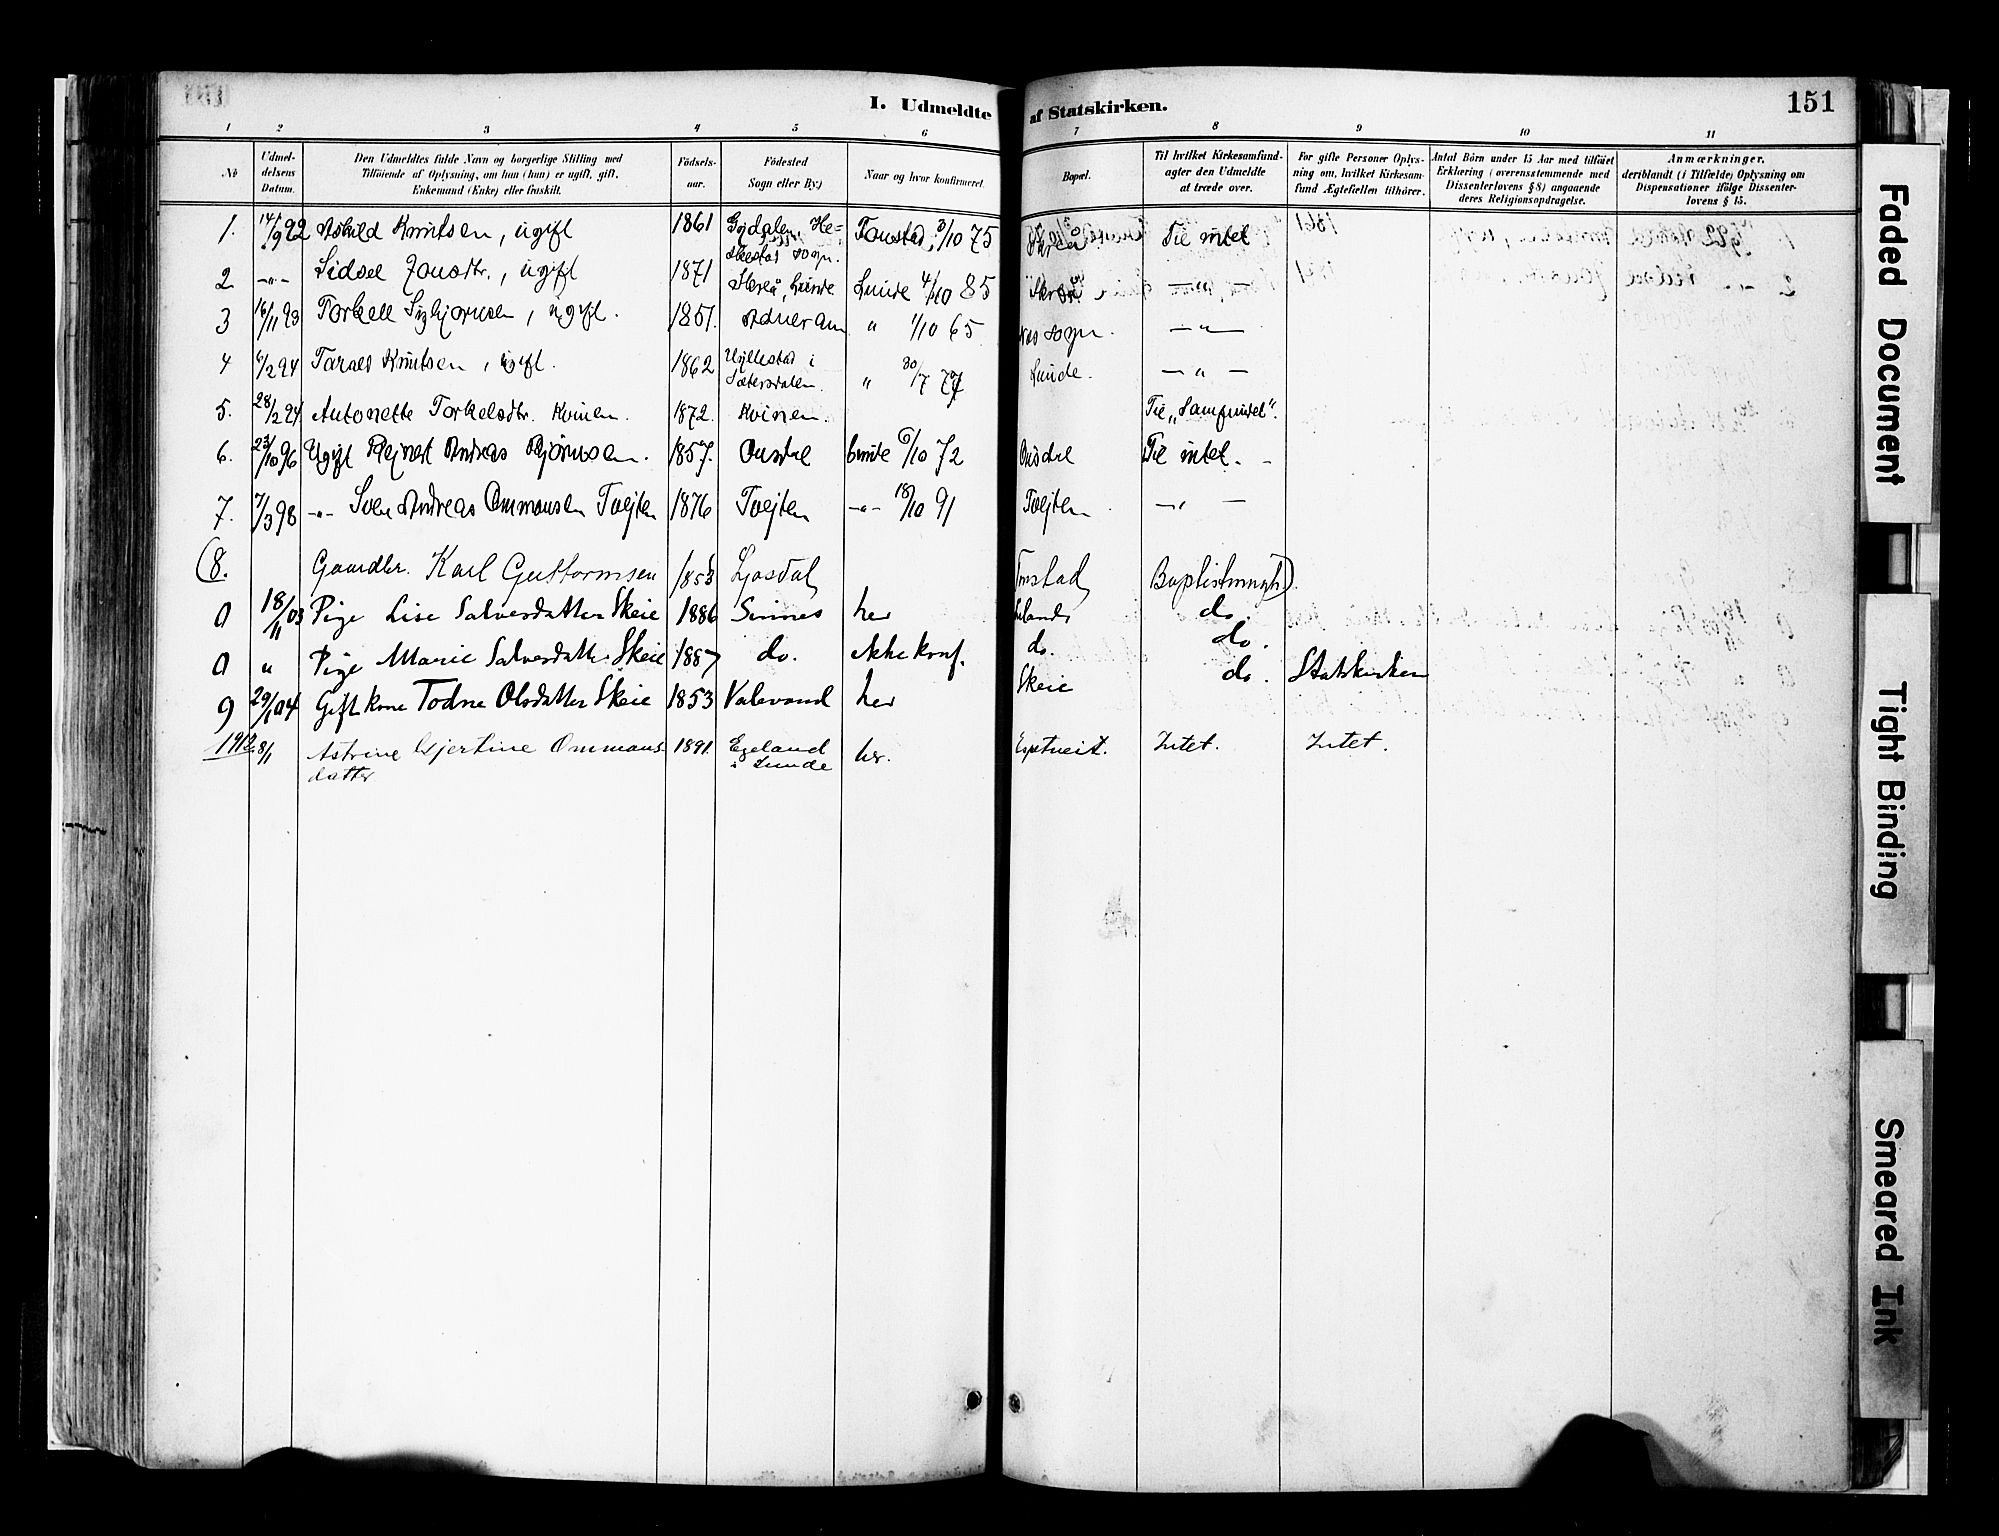 I. Udmeldte af Statskirken.
151
1 2 3 4 5 6 7 8 9 10 11
No
Udmel-
delsens
Datum.
Den Udmeldtes fulde Navn og borgerlige Stilling med
Tilföiende af Oplysning, om han (hun) er ugift, gift,
Enkemand (Enke) eller fraskilt.
Födsels-
aar.
Födested
Sogn eller By.)
Naar og hvor konfirmeret.
Bopæl.
Til hvilket Kirkesamfund-
agter den Udmeldte
at træde over.
For gifte Personer Oplys-
ning om, hvilket Kirkesam-
fund Ægtefællen tilhörer.
Antal Börn under 15 Aar med tilföiet
Erklæring (overensstemmende med
Dissenterlovens § 8) angaaende
deres Religionsopdragelse.
Anmærkninger,
deriblandt (i Tilfælde) Oplysning om
Dispensationer ifölge Dissenter-
lovens § 15.
1. 14/9 92 Knutsen, ugift 1861 Gydalen, He- 3/10 75 Skreå Til intet
skestad sogn.
2 -"- Sidsel Jonsdtr., ugift 1871 Skreå, Lunde Lunde 4/10 85 Skreå -"-
3 16/11 93 Torkell Sigbjörnsen, ugift. 1851. " 1/10 65 sogn. -"-
4 6/2 94 Knutsen, ugift. 1862 i Sætersdalen. " 30/7 77 Lunde. -"-
5. 28/2 94 Antonette Torkelsdtr. Kvinen. 1872. Kvinen. Til "Samfundet".
6. 23/10 96 Ugift Andreas Bjørnsen. 1857. Ousdal Lunde 6/10 72 Ousdal Til intet. -
7. 7/3 98 -"- Sven Andreas Ommonsen Tvejten 1876 Tvejten -"- 18/10 91 Tvejten -"-
(8. Gaardbr. Karl Guttormsen 1853 Ljosdal Baptistmngh.)
0 18/11 03 Pige Lise Salvesdatter Skeie 1886 Sinnes her do.
0 " Pige Marie Salvesdatter Skeie 1887 do. ikke konf. do. do.
9 29/1 04 Gift kone Todne Olsdatter Skeie 1853 Valevand her Skeie do. Statskirken
1912 8/1 Astrine Gjertine Ommons- 1891. Egeland her. Intet. Intet.
datter i Lunde
Faded Document
Tight Binding
Smeared Ink